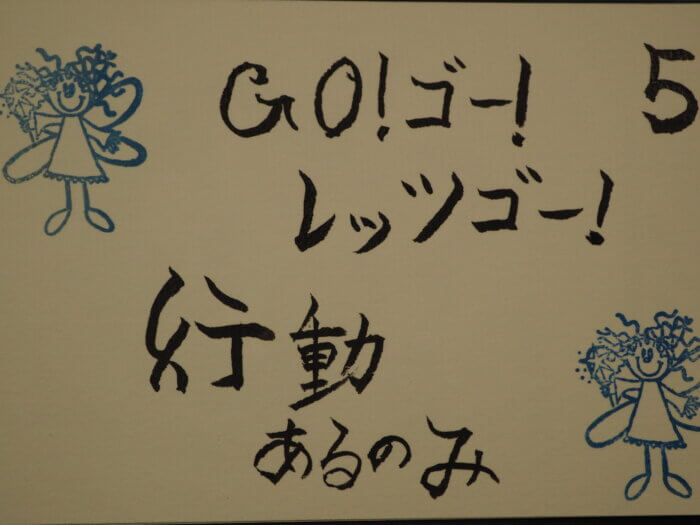 GO!ゴー! 5
レッツゴー!
行動
あるのみ